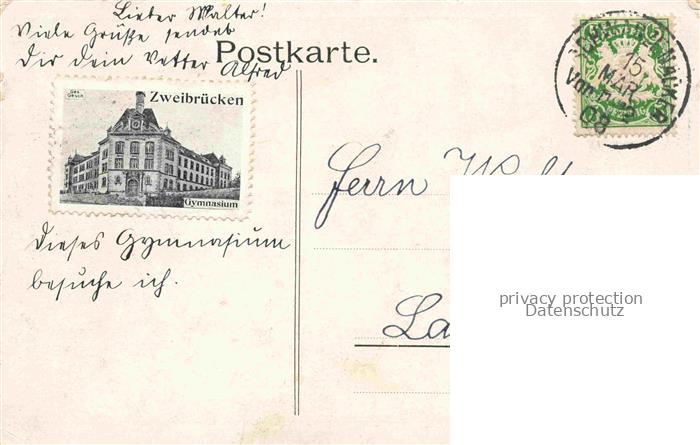 Lieber Walter!
Viele Grüße sendet
Dir dein Vetter Alfred
Postkarte.
Ges. Gesch.
Zweibrücken
Gymnasium
Dieses Gymnasium
besuche ich.
15
MAR
08
Herrn
privacy protection
Datenschutz